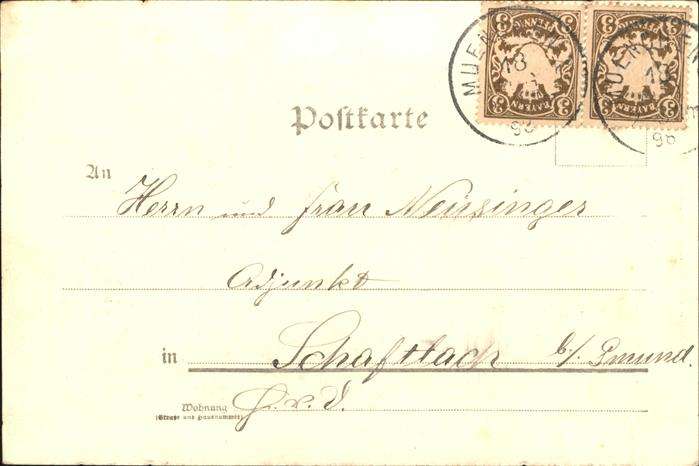 3 PFENNIG 3 3 PFENNIG 3
3 BAYERN 3 3 BAYERN 3
MUENCHEN
18
98
MUENCHEN
18
98
Postkarte
An
Herrn und Frau Neusinger
Adjunkt
in Schaftlach b/. Gmund.
Wohnung
(Straße und Hausnummer)